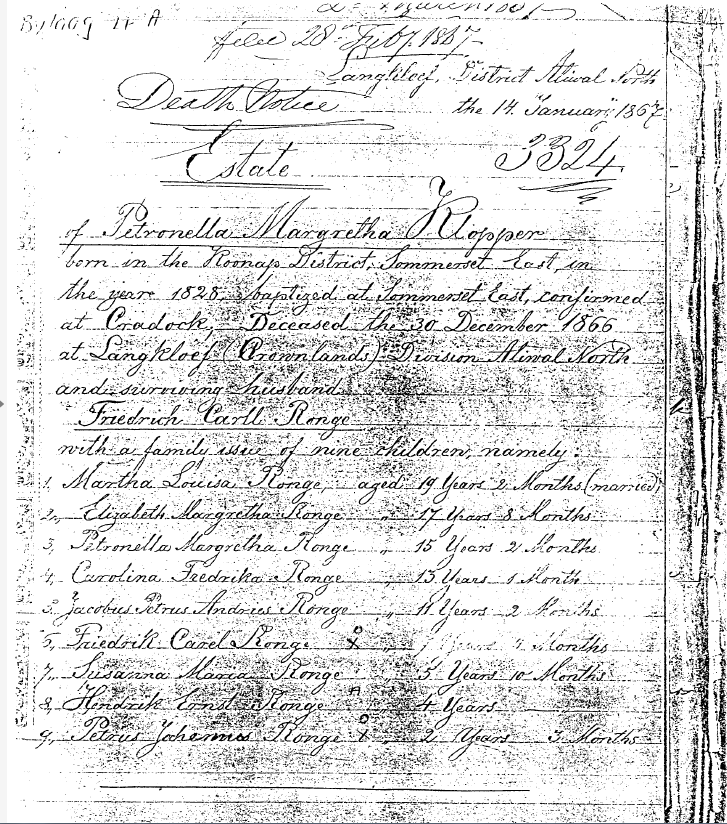 Bylaag N A
filed 28 Feby. 1867
Langkloef, District Aliwal North
Death Notice
the 14 January, 1867
Estate
3324
of Petronella Margretha Klopper
born in the Koonap District, Sommerset East, in
the year 1828, baptized at Sommerset East, confirmed
at Cradock, Deceased the 30 December 1866
at Langkloef (Crownlands) Division Aliwal North
and surviving husband
Friedrich Carll Ronge
with a family issue of nine children, namely:
1. Martha Louisa Ronge, aged 19 Years 2 Months (married)
2. Elizabeth Margretha Ronge " 17 Years 8 Months
3, Petronella Margretha Ronge " 15 Years 2 Months
4, Carolina Fredrika Ronge " 13 Years 1 Month
5, Jacobus Petrus Andries Ronge " 11 Years 2 Months
6, Friedrik Carel Ronge X " Years Months
7, Susanna Maria Ronge " 5 Years 10 Months
8, Hendrik Ernst Ronge " 4 Years
9, Petrus Johannes Ronge X " 2 Years 3 Months